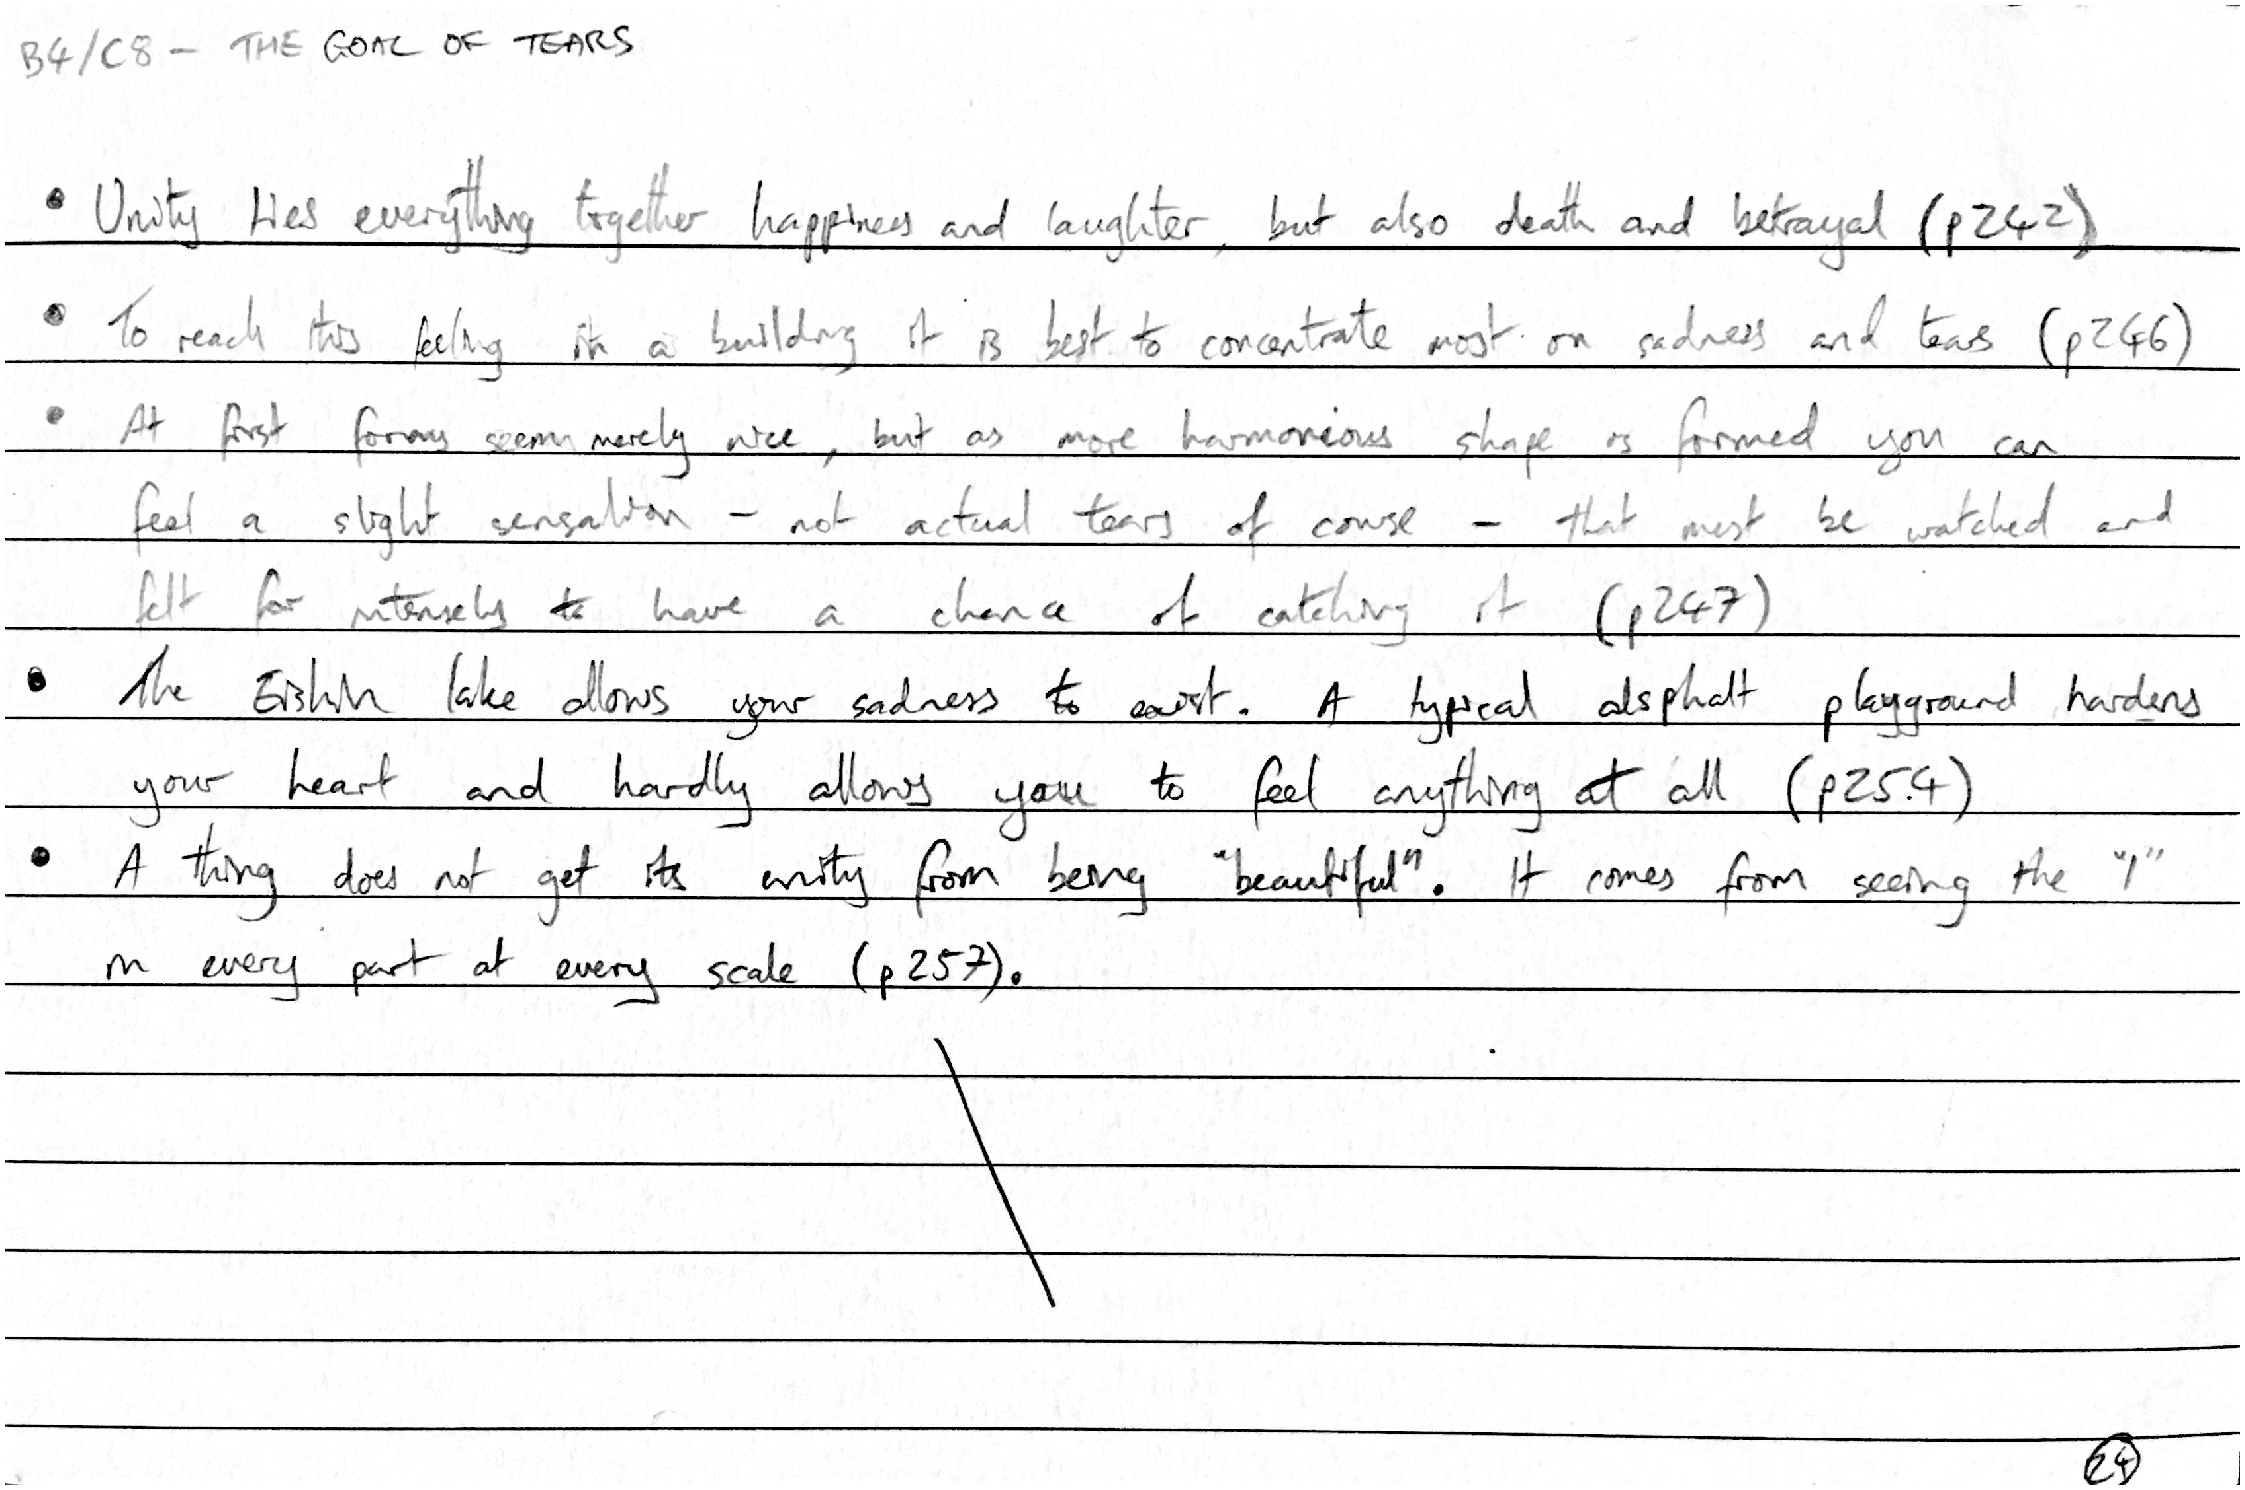 B4/C8 - THE GOAL OF TEARS
• Unity ties everything together happiness and laughter, but also death and betrayal (p242)
• To reach this feeling in a building it is best to concentrate most on sadness and tears (p246)
• At first forms seem merely nice, but as more harmoneious shape is formed you can
feel a slight sensation - not actual tears of couse - that must be watched and
felt for intensely to have a chance of catching it (p247)
• The Eishin lake allows your sadness to exist. A typical alsphalt playground hardens
your heart and hardly allows you to feel anything at all (p254)
• A thing does not get its unity from being "beautiful". It comes from seeing the "I"
in every part at every scale (p257).
24